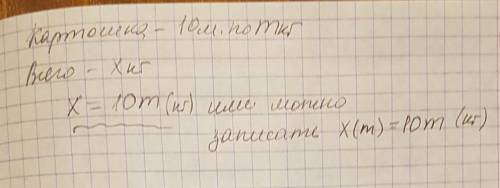 Картошка - 10м. по m кг
Всего - x кг
x = 10m (кг) или можно
записать x(m) = 10m (кг)